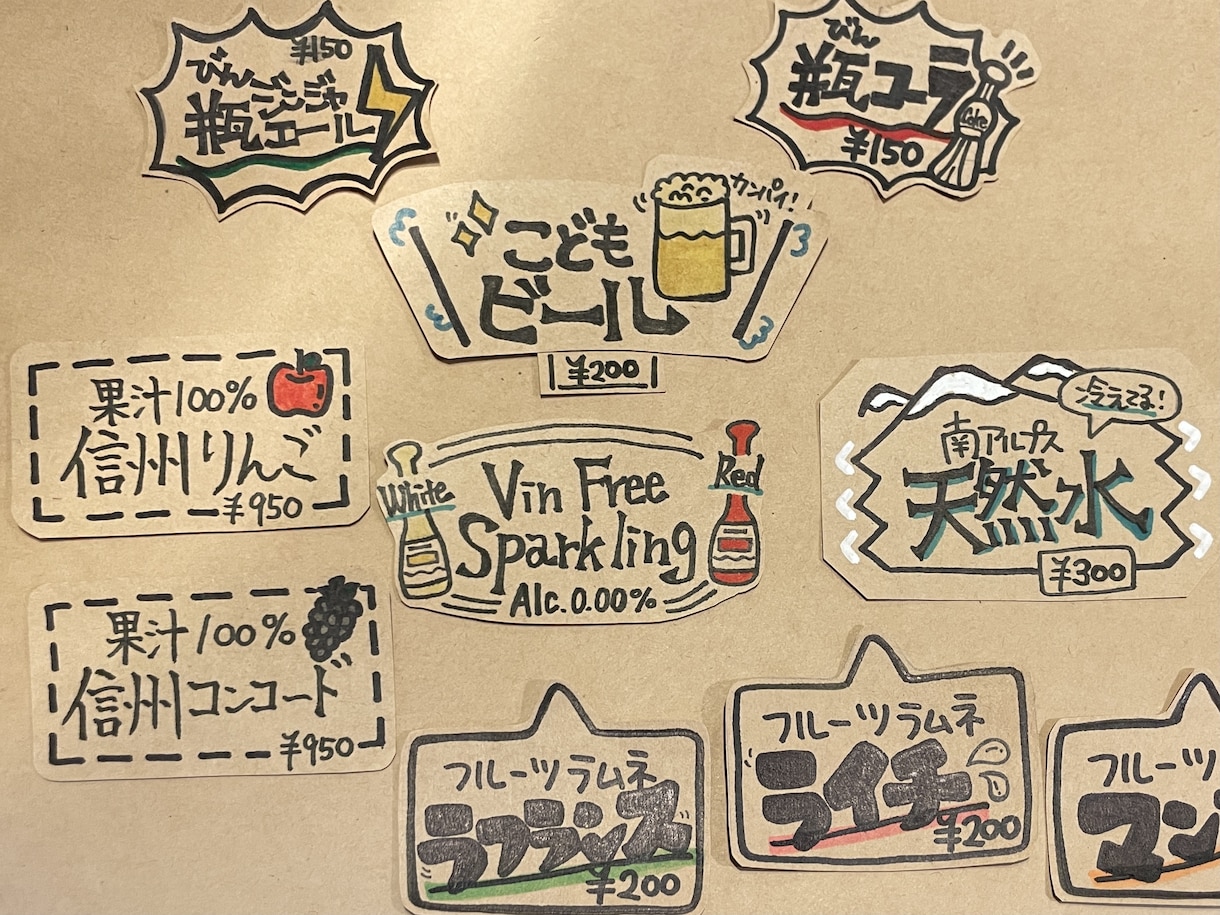 ¥150
びん ジンジャ
瓶エール
びん
瓶コーラ
Coke
¥150
カンパイ!
こども
ビール
¥200
果汁100%
信州りんご
¥950
White
Red
Vin Free
Sparkling
Alc.0.00%
冷えてる!
南アルプス
天然水
¥300
果汁100%
信州コンコード
¥950
フルーツラムネ
ラフランス
¥200
フルーツラムネ
ライチ
¥200
フルーツ
マン